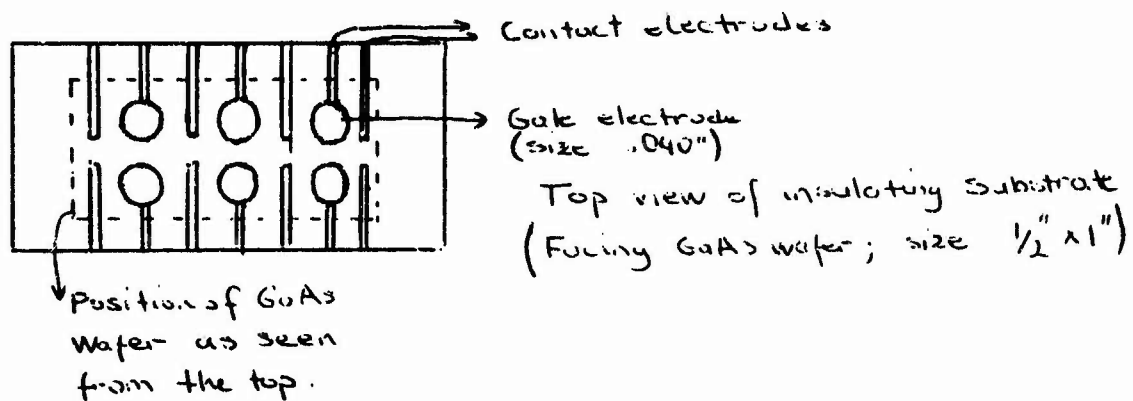 Contact electrodes
Gate electrode
(size .040")
Top view of insulating substrate
(Facing GaAs wafer; size 1/2" x 1")
Position of GaAs
wafer as seen
from the top.